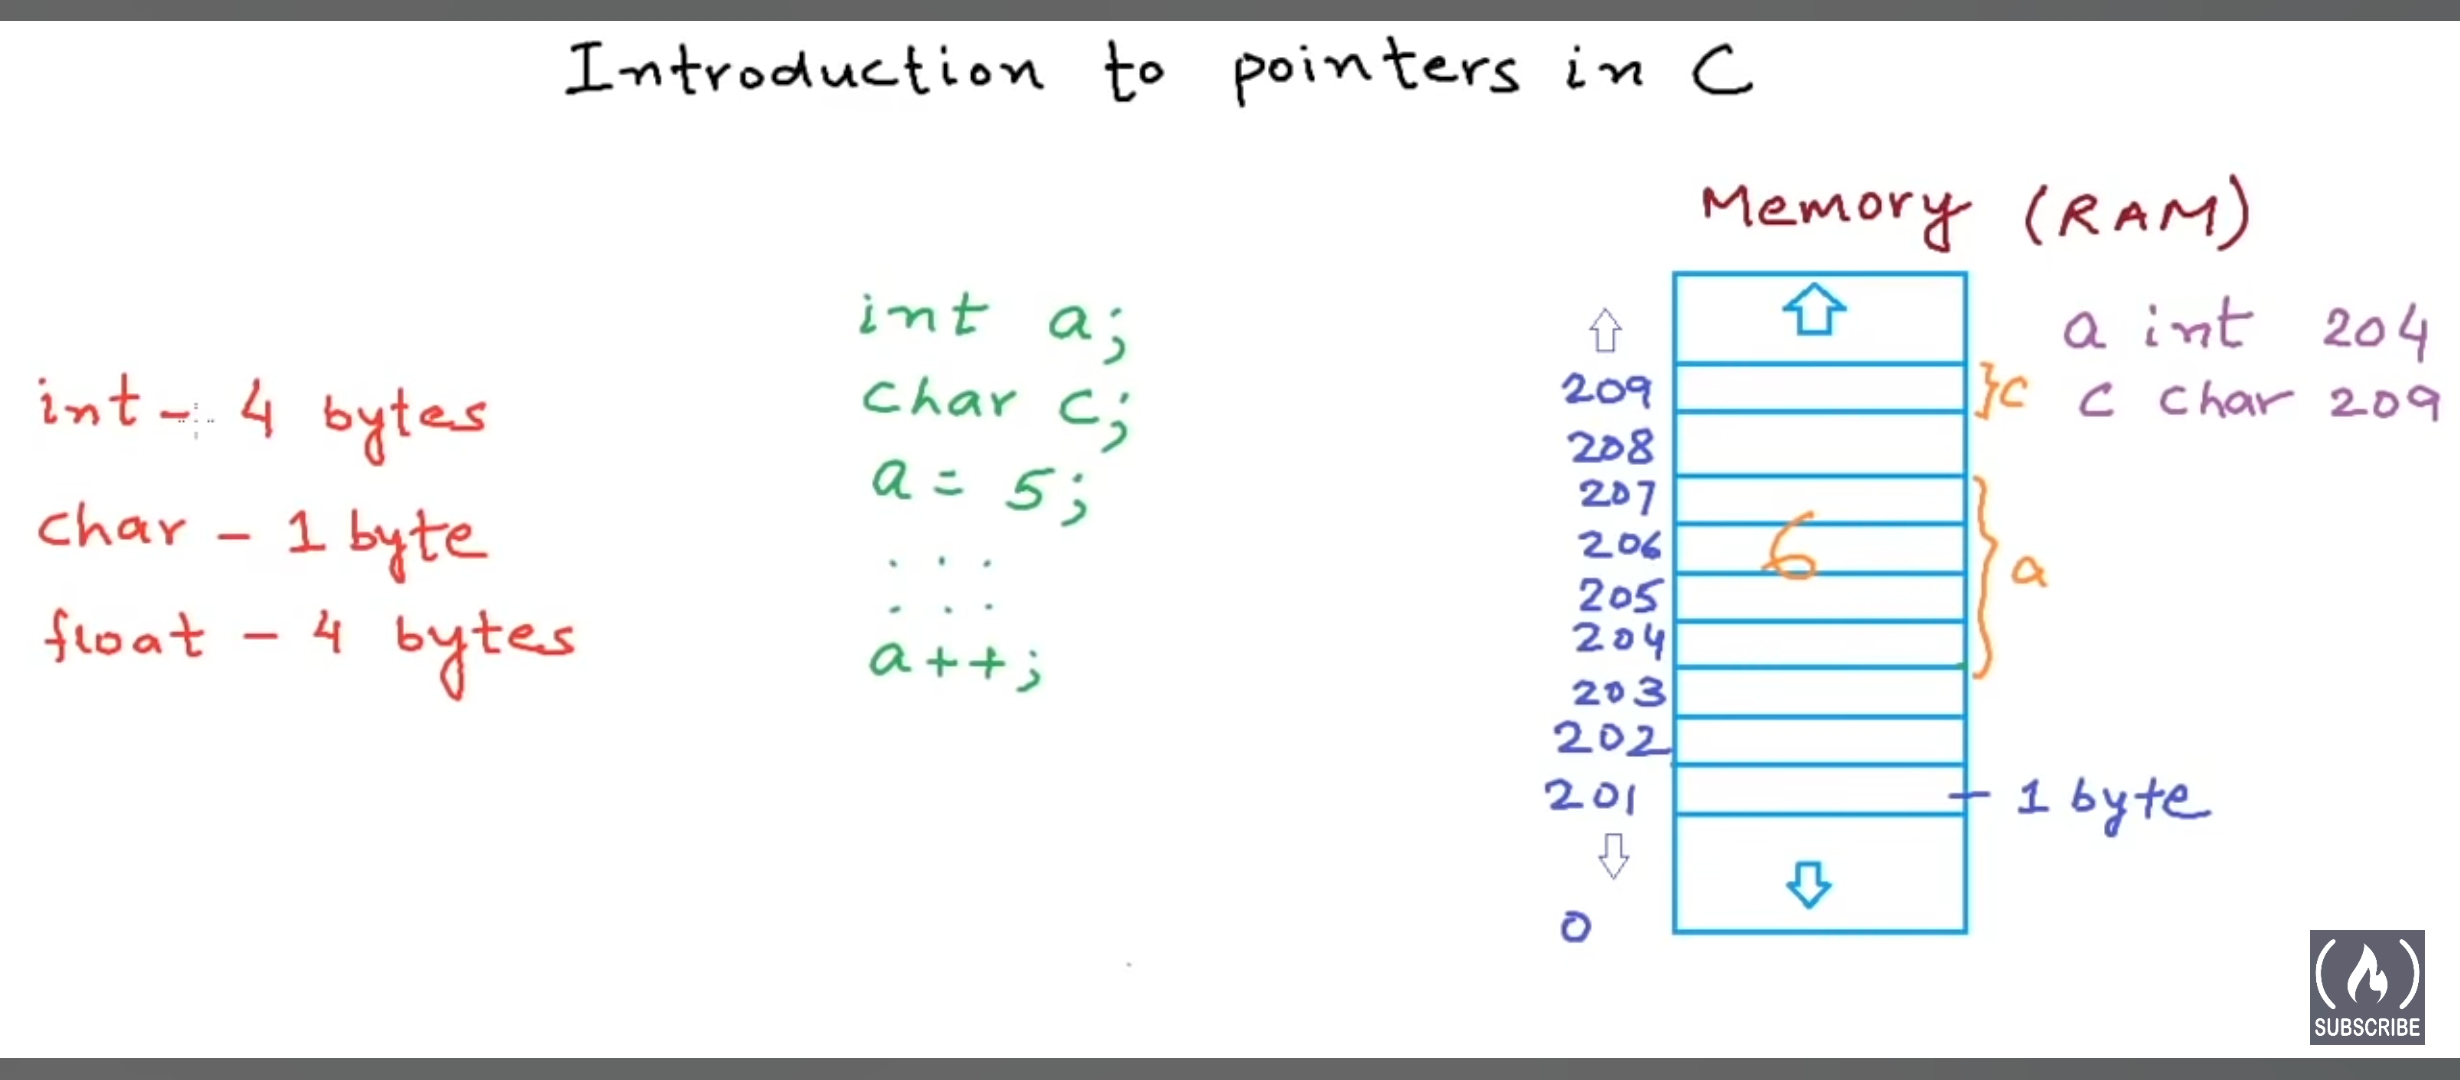 Introduction to pointers in C
Memory (RAM)
int - 4 bytes
char - 1 byte
float - 4 bytes
int a;
char c;
a = 5;
. . .
. . .
a++;
209
208
207
206
205
204
203
202
201
0
6
}c
}a
a int 204
c char 209
- 1 byte
SUBSCRIBE